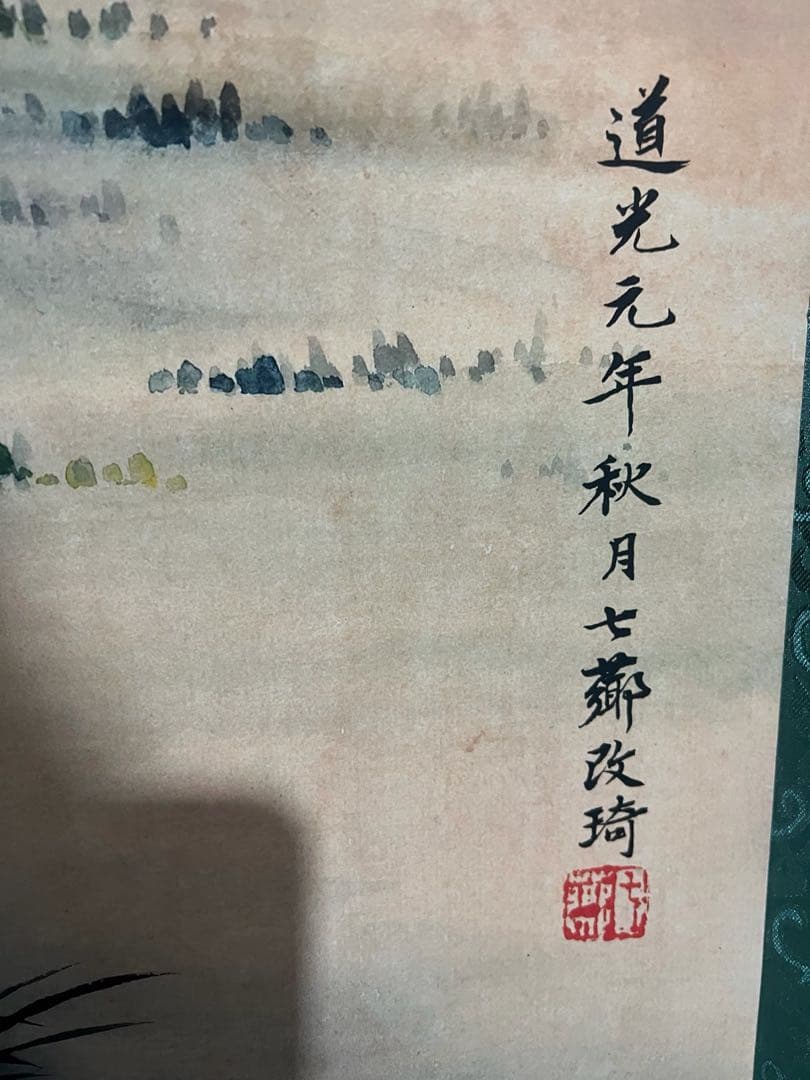 道光元年秋月七薌改琦
七薌